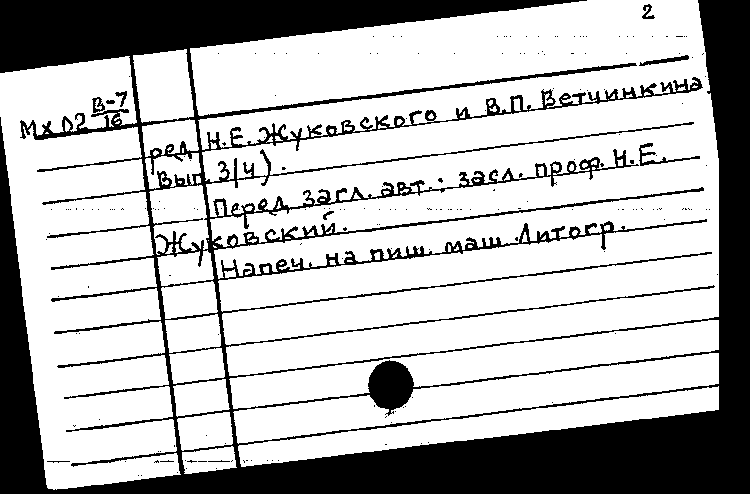 2
Мх D2 В-7/16
ред. Н.Е. Жуковского и В.П. Ветчинкина.
Вып. 3/4).
Перед загл. авт.: засл. проф. Н.Е.
Жуковский.
Напеч. на пиш. маш. Литогр.